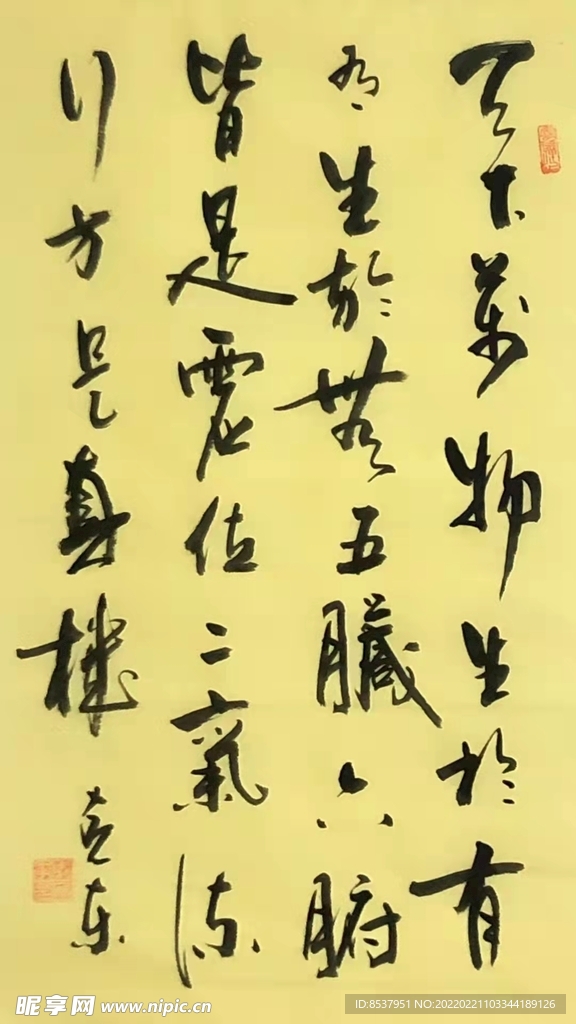 天下萬物生於有
有生於無五臟六腑
皆是震位二氣流
行方是真機
克东
昵享网 www.nipic.cn
ID:8537951 NO:20220221103344189126